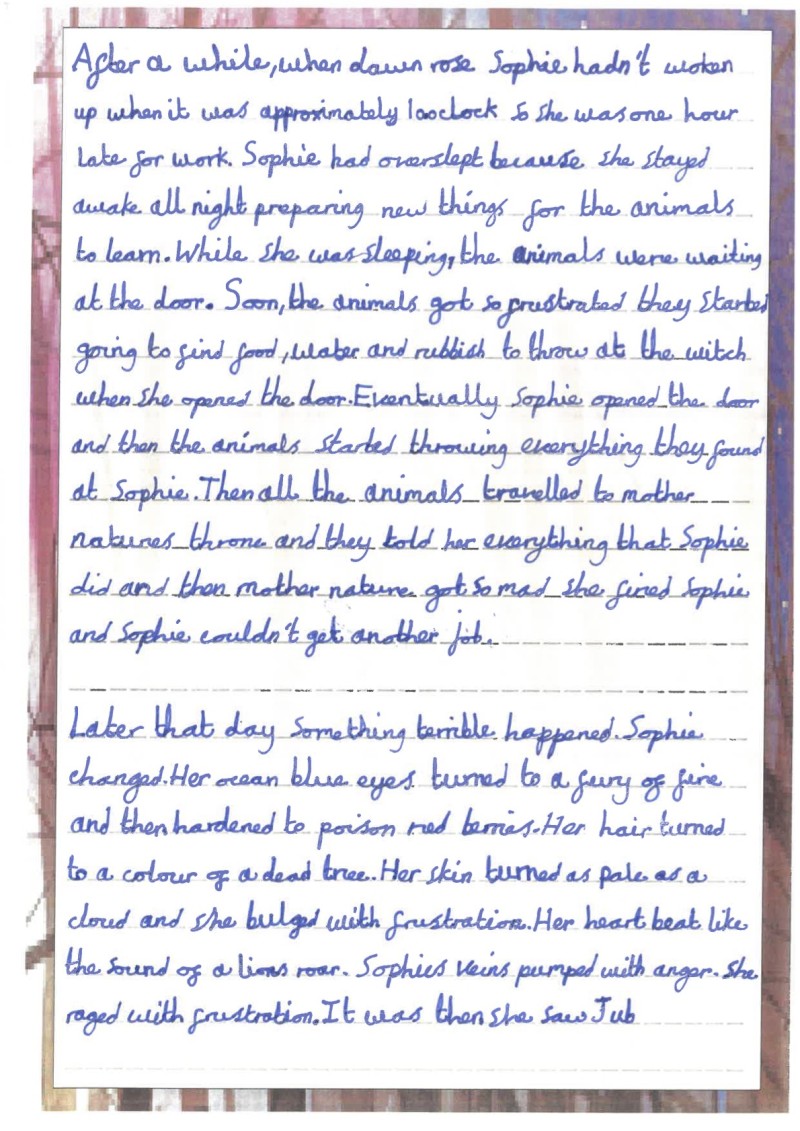 After a while, when dawn rose Sophie hadn't woken
up when it was approximately 10oclock so she was one hour
late for work. Sophie had overslept because she stayed
awake all night preparing new things for the animals
to learn. While she was sleeping, the animals were waiting
at the door. Soon, the animals got so frustrated they started
going to find food, water and rubbish to throw at the witch
when she opened the door. Eventually Sophie opened the door
and then the animals started throwing everything they found
at Sophie. Then all the animals travelled to mother
natures throne and they told her everything that Sophie
did and then mother nature got so mad she fired Sophie
and Sophie couldn't get another job.
Later that day something terrible happened. Sophie
changed. Her ocean blue eyes turned to a fury of fire
and then hardened to poison red berries. Her hair turned
to a colour of a dead tree. Her skin turned as pale as a
cloud and she bulged with frustration. Her heart beat like
the sound of a lions roar. Sophies veins pumped with anger. She
raged with frustration. It was then she saw Jub